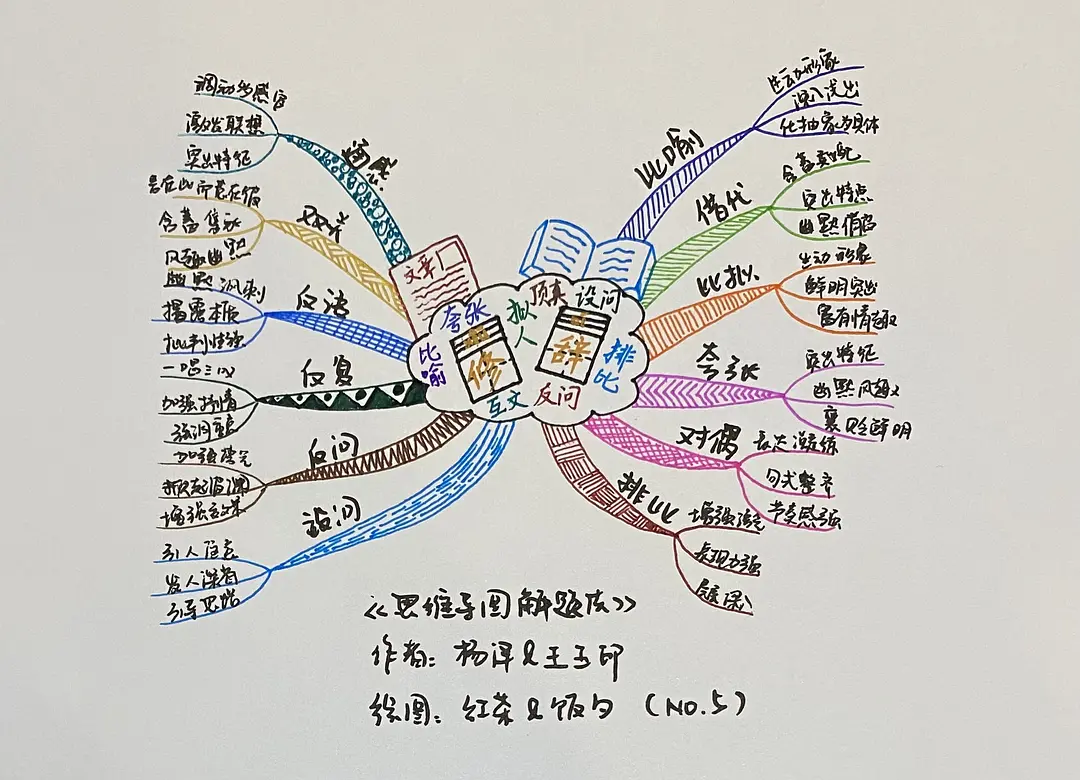 比喻
生动形象
深入浅出
化抽象为具体
借代
含蓄真晓
突出特点
幽默俏皮
比拟
生动形象
鲜明突出
富有情趣
夸张
突出特征
幽默风趣
褒贬鲜明
对偶
表达凝练
句式整齐
节奏感强
排比
增强语气
表现力强
通感
调动多感官
激发联想
突出特征
双关
言在此而意在彼
含蓄
风趣幽默
反语
幽默讽刺
揭露本质
批判性强
反复
一唱三叹
加强抒情
强调重点
反问
加强语气
掀起波澜
增强效果
设问
引人注意
发人深省
引导思路
文章
夸张
拟人
顶真
设问
比喻
修
辞
排比
互文
反问
《思维导图解题法》
作者:杨泽&王玉印
绘图:红茶&饭勺(NO.5)